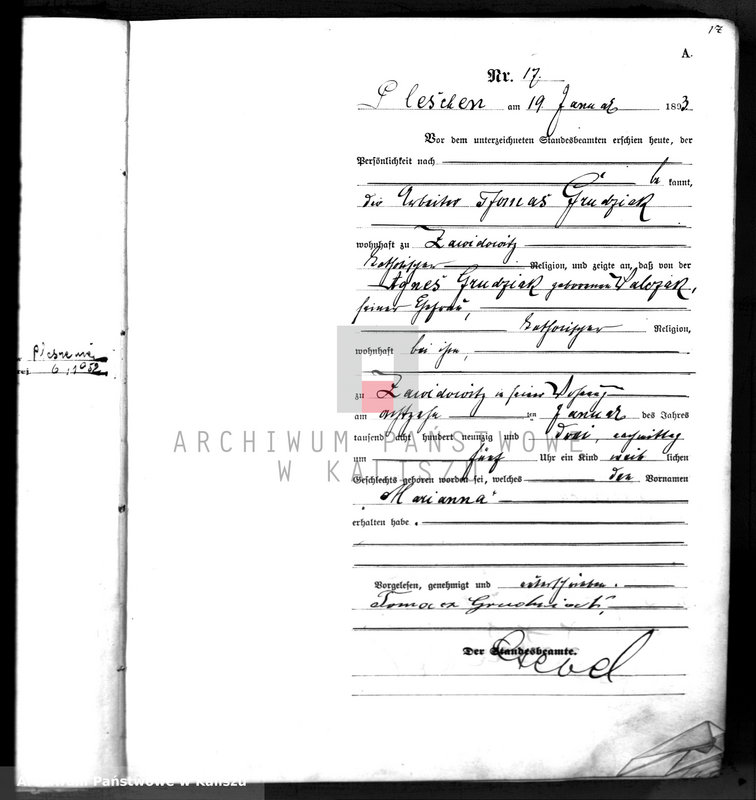 17
A.
Nr. 17.
Pleschen am 19 Januar 1893
Vor dem unterzeichneten Standesbeamten erschien heute, der
Persönlichkeit nach
be kannt,
der Arbeiter Thomas Grudziak
wohnhaft zu Zawidowitz
katholischer Religion, und zeigte an, daß von der
Agnes Grudziak geborenen Walczak,
seiner Ehefrau,
katholischer Religion,
wohnhaft bei ihm,
zu Zawidowitz in seiner Wohnung
am achtzehn ten Januar des Jahres
tausend acht hundert neunzig und drei, nachmittag
um fünf Uhr ein Kind weib lichen
Geschlechts geboren worden sei, welches den Vornamen
"Marianna"
erhalten habe.
Vorgelesen, genehmigt und unterschrieben.
Tomasz Grudziak
Der Standesbeamte.
ARCHIWUM PAŃSTWOWE
W KALISZU
Archiwum Państwowe w Kaliszu